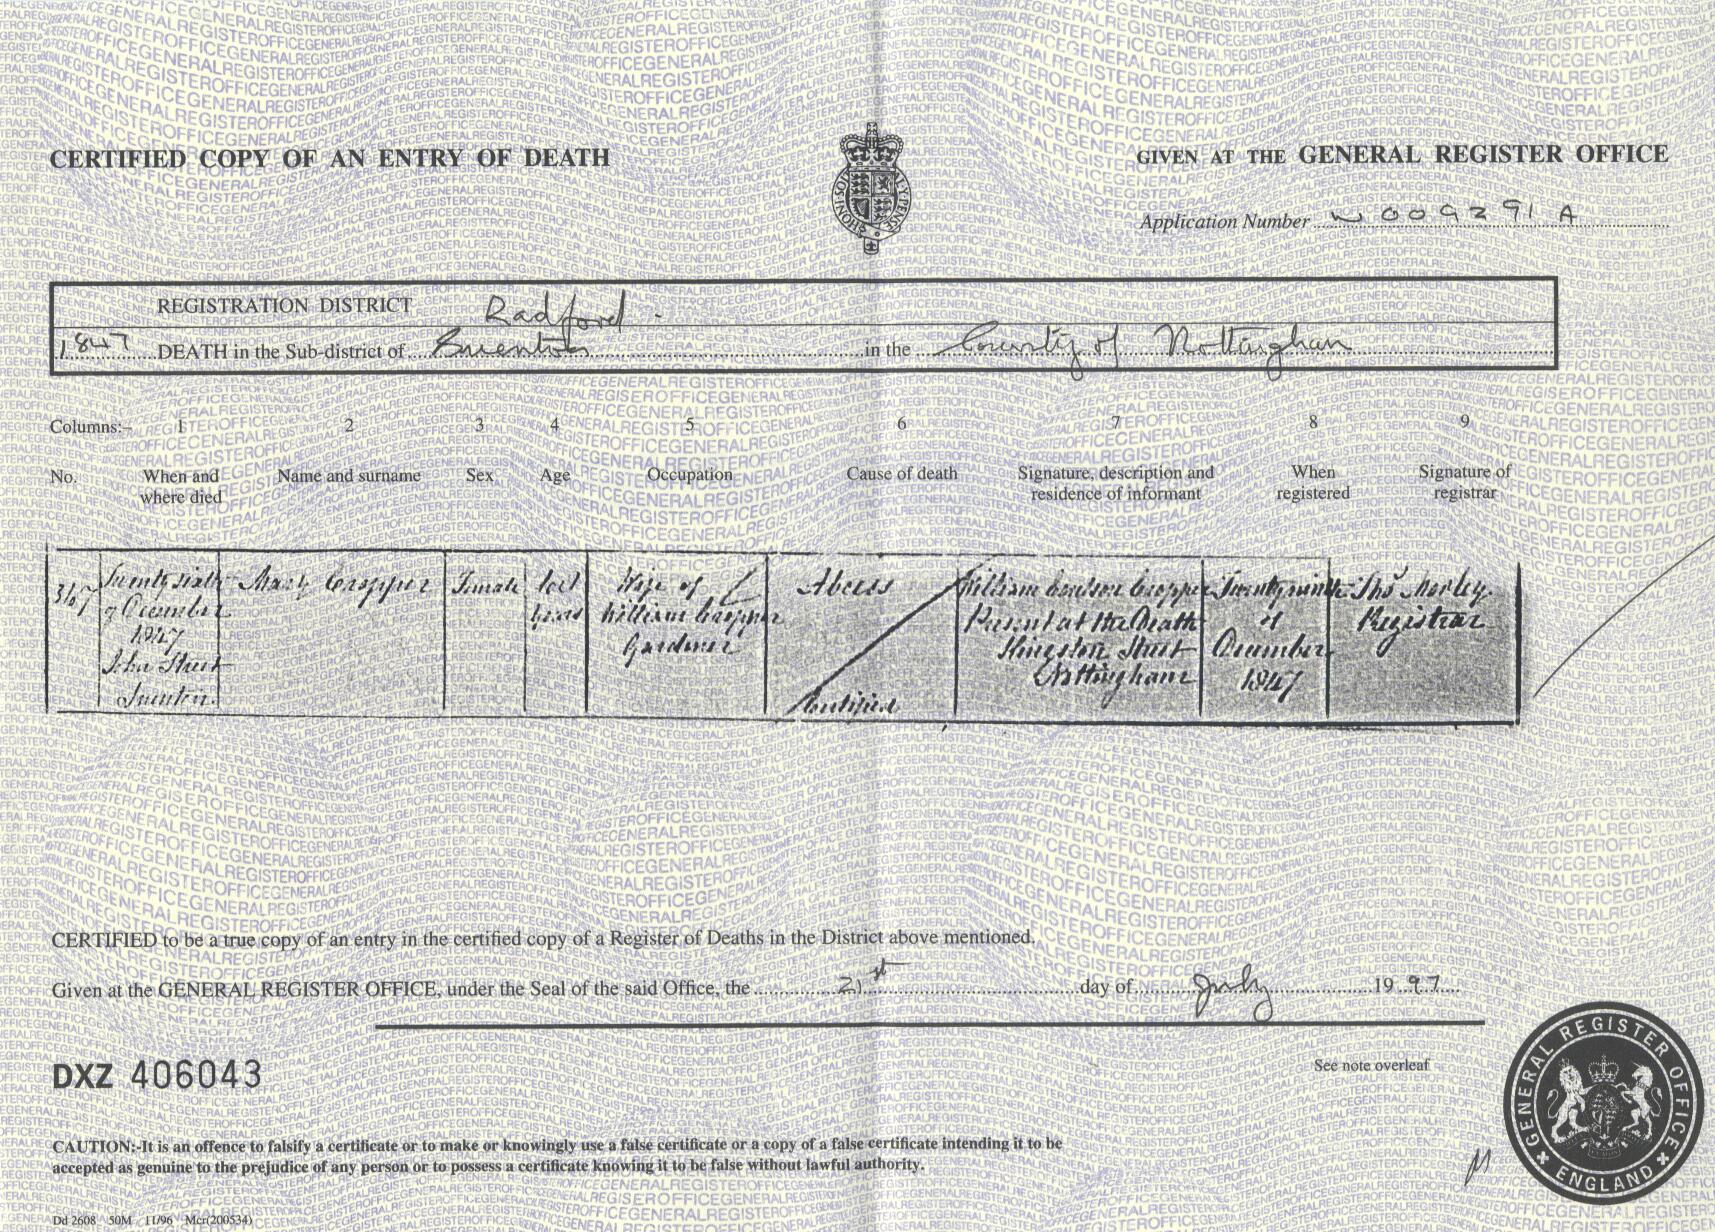 CERTIFIED COPY OF AN ENTRY OF DEATH
GIVEN AT THE GENERAL REGISTER OFFICE
Application Number W009291A
REGISTRATION DISTRICT Radford
1847 DEATH in the Sub-district of Sneinton in the County of Nottingham
Columns:- 1 2 3 4 5 6 7 8 9
No. When and where died Name and surname Sex Age Occupation Cause of death Signature, description and residence of informant When registered Signature of registrar
367
Twenty sixth
of December
1847
John Street
Sneinton
Mary Cropper
Female
years
Wife of
William Cropper
Gardener
Abcess
Certified
William Cropper
Present at the Death
Street
Nottingham
Twenty ninth
of
December
1847
Thos Morley
Registrar
CERTIFIED to be a true copy of an entry in the certified copy of a Register of Deaths in the District above mentioned.
Given at the GENERAL REGISTER OFFICE, under the Seal of the said Office, the 21st day of July 1997
See note overleaf
DXZ 406043
CAUTION:-It is an offence to falsify a certificate or to make or knowingly use a false certificate or a copy of a false certificate intending it to be
accepted as genuine to the prejudice of any person or to possess a certificate knowing it to be false without lawful authority.
GENERAL REGISTER OFFICE
ENGLAND
Dd 2608 50M 11/96 Mcr(200534)